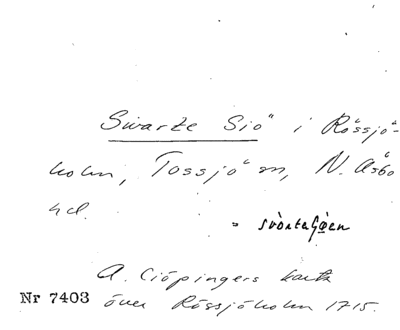 Swarte Siö i Rössjö-
holm, Tossjö sn, N. Åsbo
hd.
= svòrtaʃøen
A. Ciöpingers karta
Nr 7403 över Rössjöholm 1715.